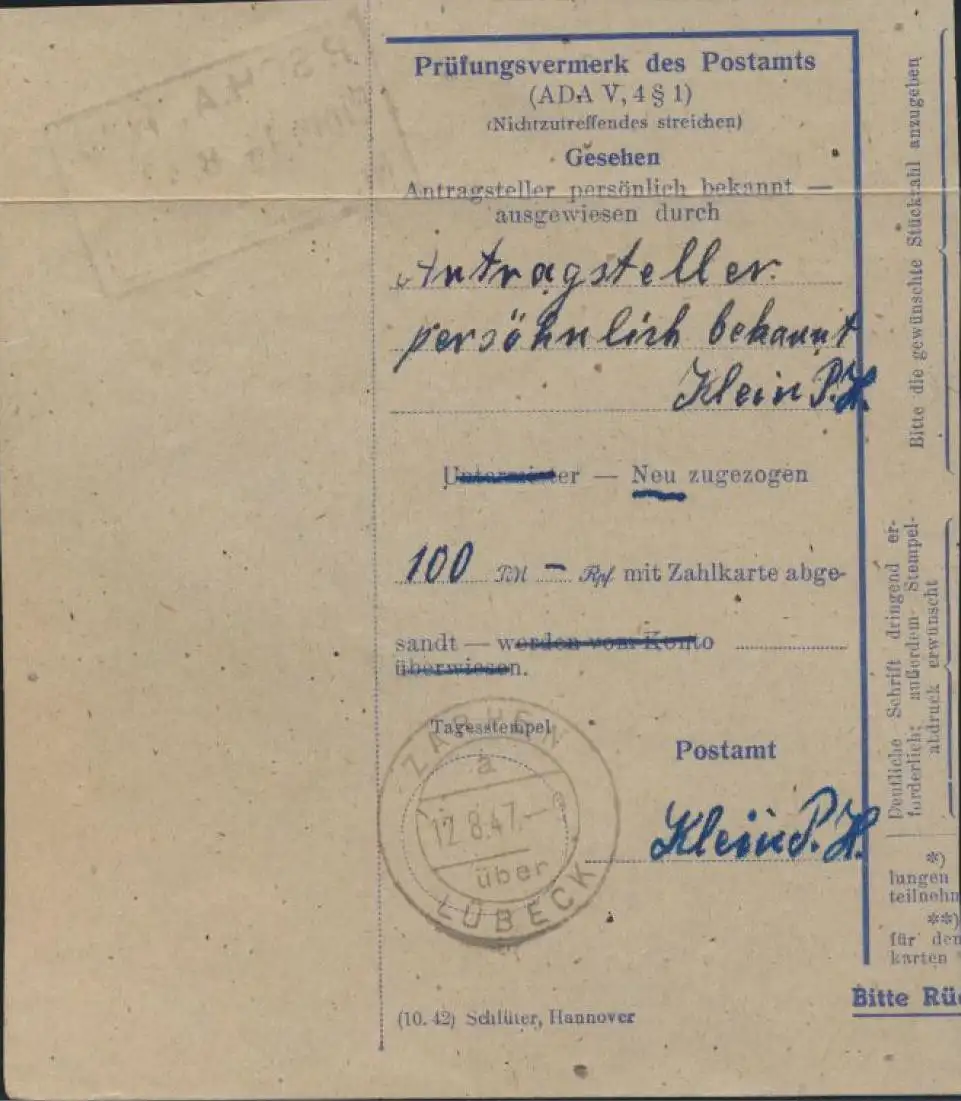 Prüfungsvermerk des Postamts
(ADA V, 4 § 1)
(Nichtzutreffendes streichen)
Gesehen
Antragsteller persönlich bekannt —
ausgewiesen durch
Antragsteller
persöhnlich bekannt
Klein P.H.
Untermieter — Neu zugezogen
100 RM — Rpf mit Zahlkarte abge-
sandt — werden vom Konto
überwiesen.
Tagesstempel
ZARPEN
a
12.8.47.
über
LÜBECK
Postamt
Klein P.H.
(10. 42) Schlüter, Hannover
Bitte die gewünschte Stückzahl anzugeben
Deutliche Schrift dringend er-
forderlich; außerdem Stempel-
abdruck erwünscht
*)
lungen
teilnehm
**)
für den
karten
Bitte Rüc